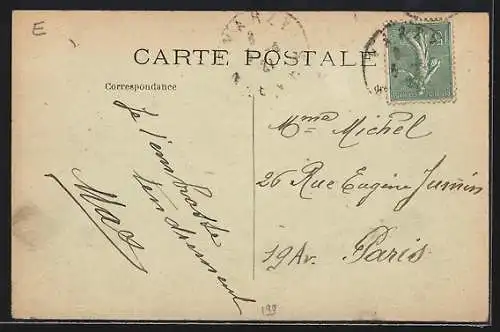 E
MARLY
CARTE POSTALE
Correspondance
Je t'embrasse
tendrement
Max
Mme Michel
26 Rue Eugène Jumin
19 Ar. Paris
199